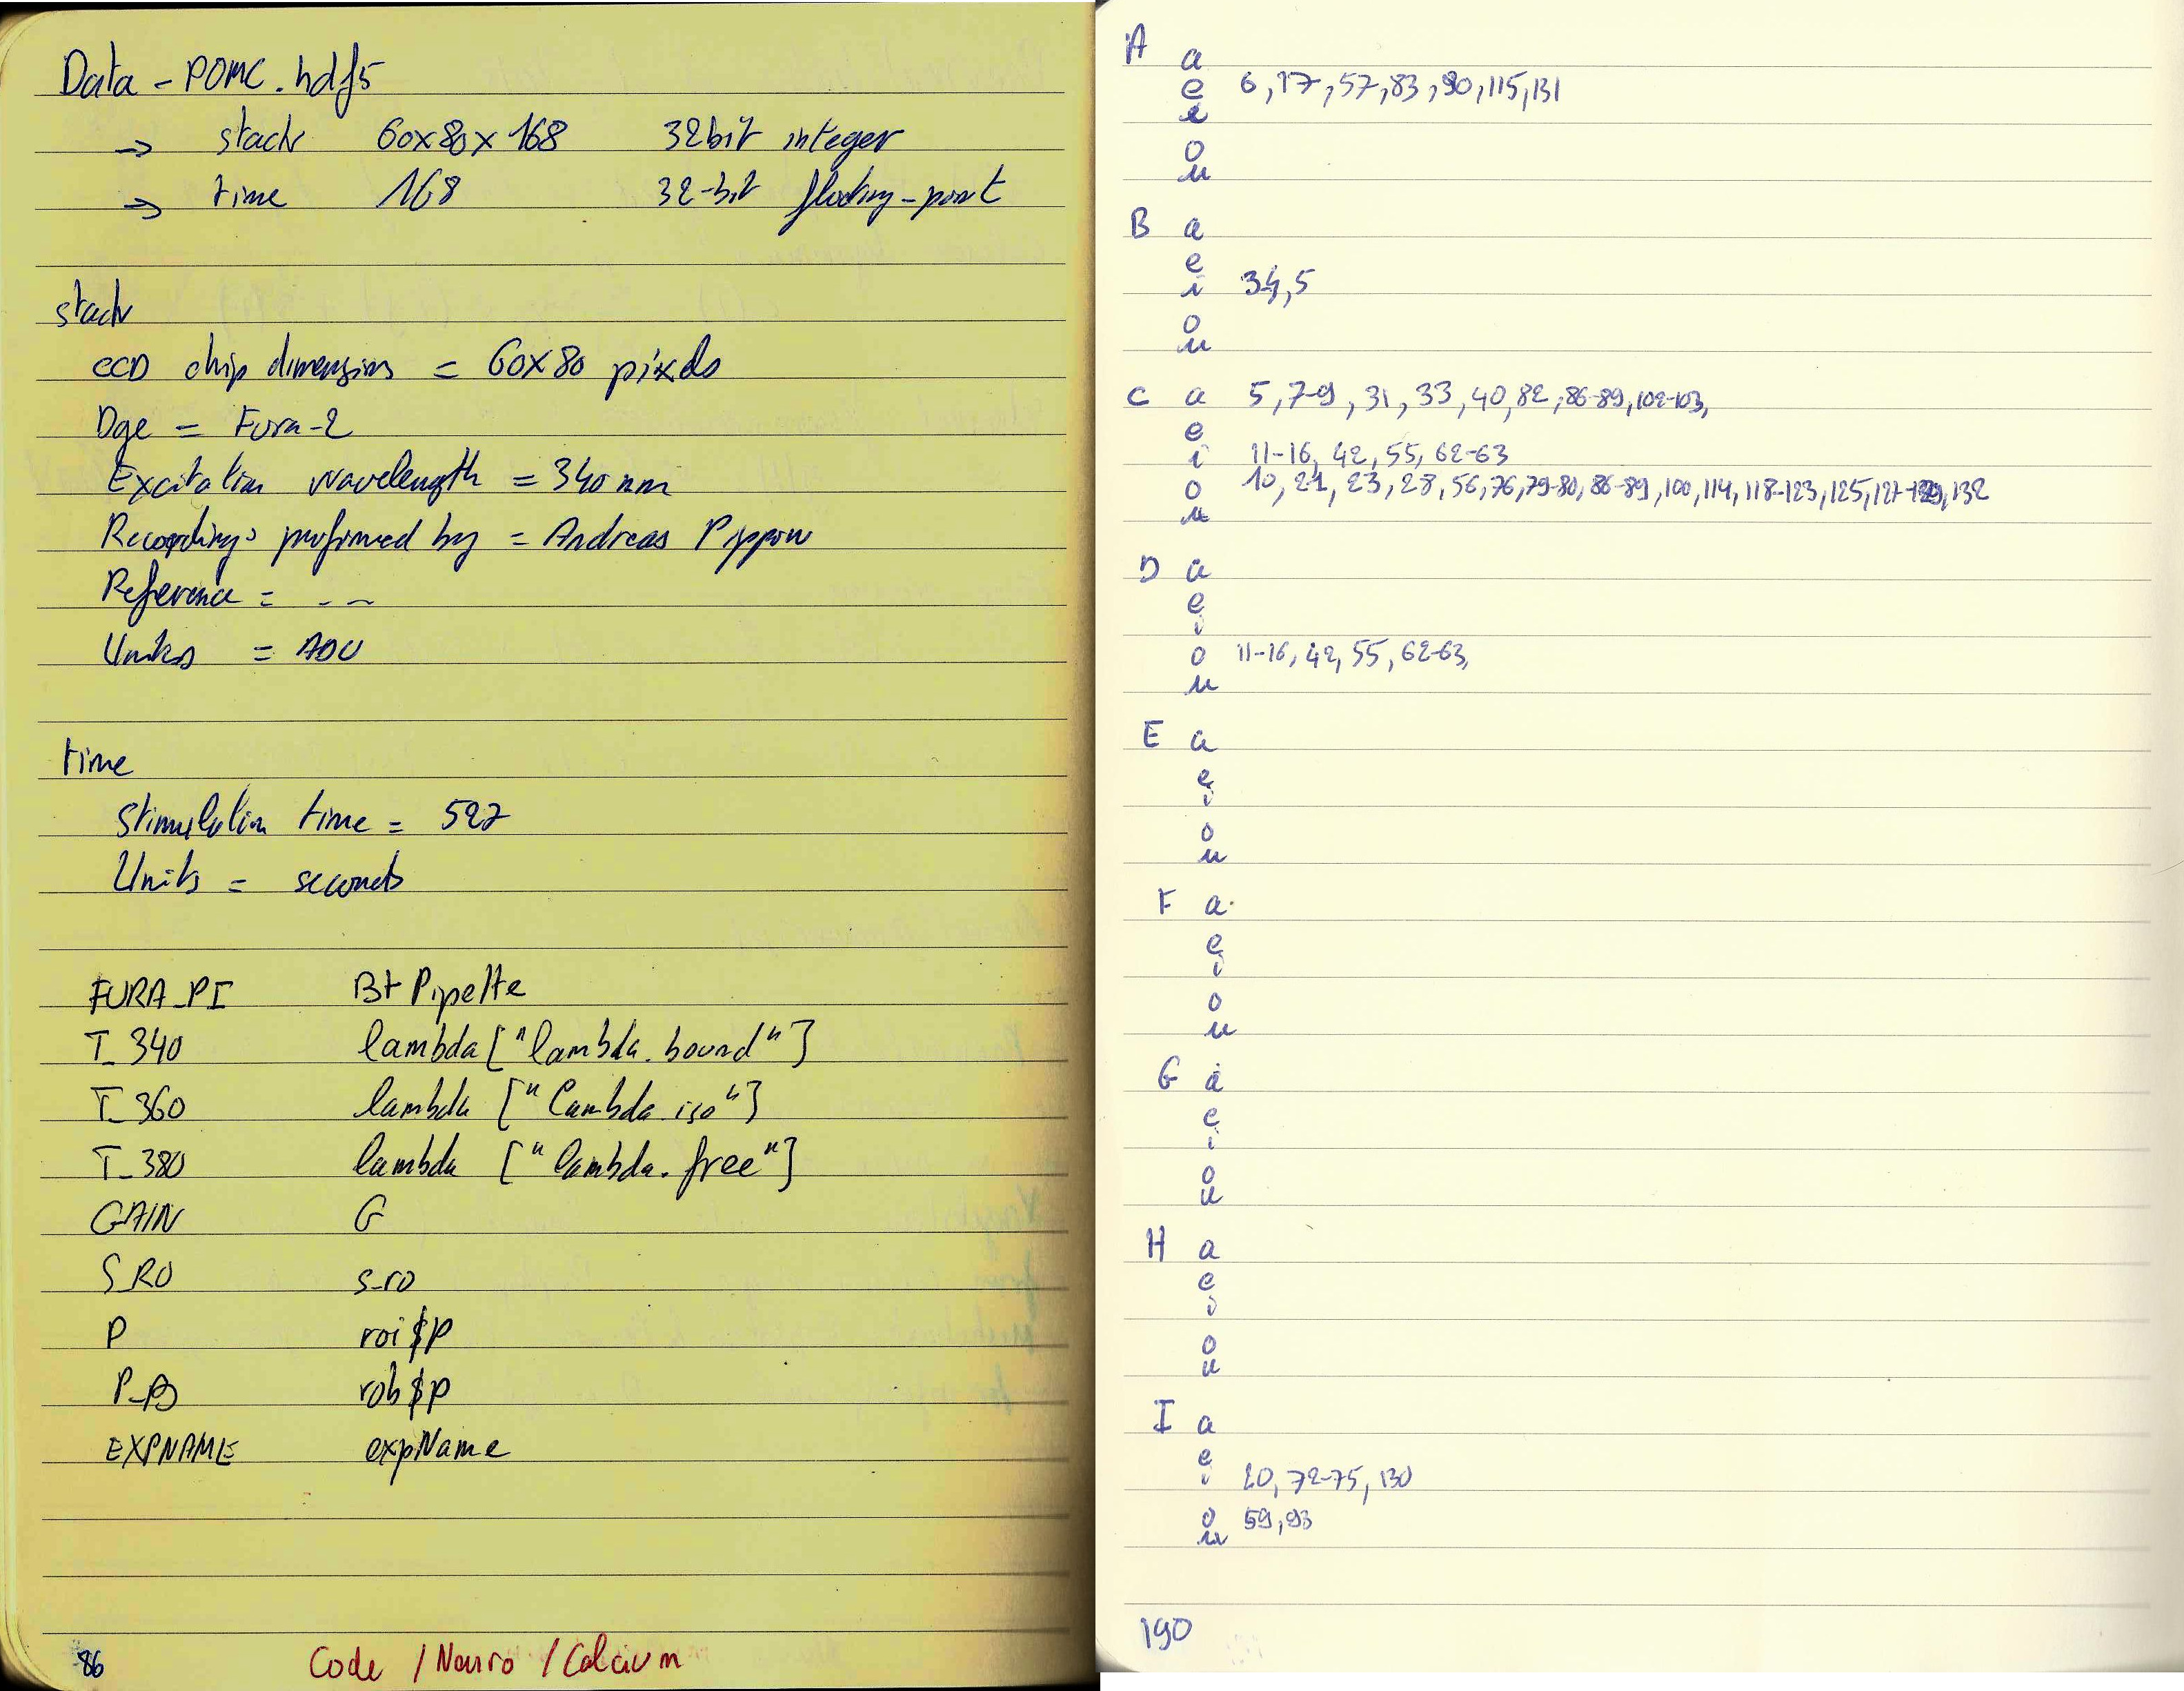 Data - POMC.hdf5
→ stack 60x80x168 32bit integer
→ time 168 32-bit floating-point
stack
CCD chip dimensions = 60x80 pixels
Dye = Fura-2
Excitation wavelength = 340 nm
Recordings performed by = Andreas Pippow
Reference = - -
Units = ADU
time
Stimulation time = 527
Units = seconds
FURA_PI Bt Pipette
T_340 lambda["lambda.bound"]
T_360 lambda ["lambda.iso"]
T_380 lambda ["lambda.free"]
GAIN G
S_RO s_ro
P roi$P
P_B rob$p
EXPNAME expName
86 Code / Neuro / Calcium
A a
e 6, 17, 57, 83, 90, 115, 131
i
o
u
B a
e
i 34, 5
o
u
C a 5, 7-9, 31, 33, 40, 82, 86-89, 102-103,
e
i 11-16, 42, 55, 62-63
o 10, 21, 23, 28, 56, 76, 79-80, 86-89, 100, 114, 118-123, 125, 132
u
D a
e
i
o 11-16, 42, 55, 62-63,
u
E a
e
i
o
u
F a
e
i
o
u
G a
e
i
o
u
H a
e
i
o
u
I a
e
i 20, 72-75, 130
o 59, 93
u
190